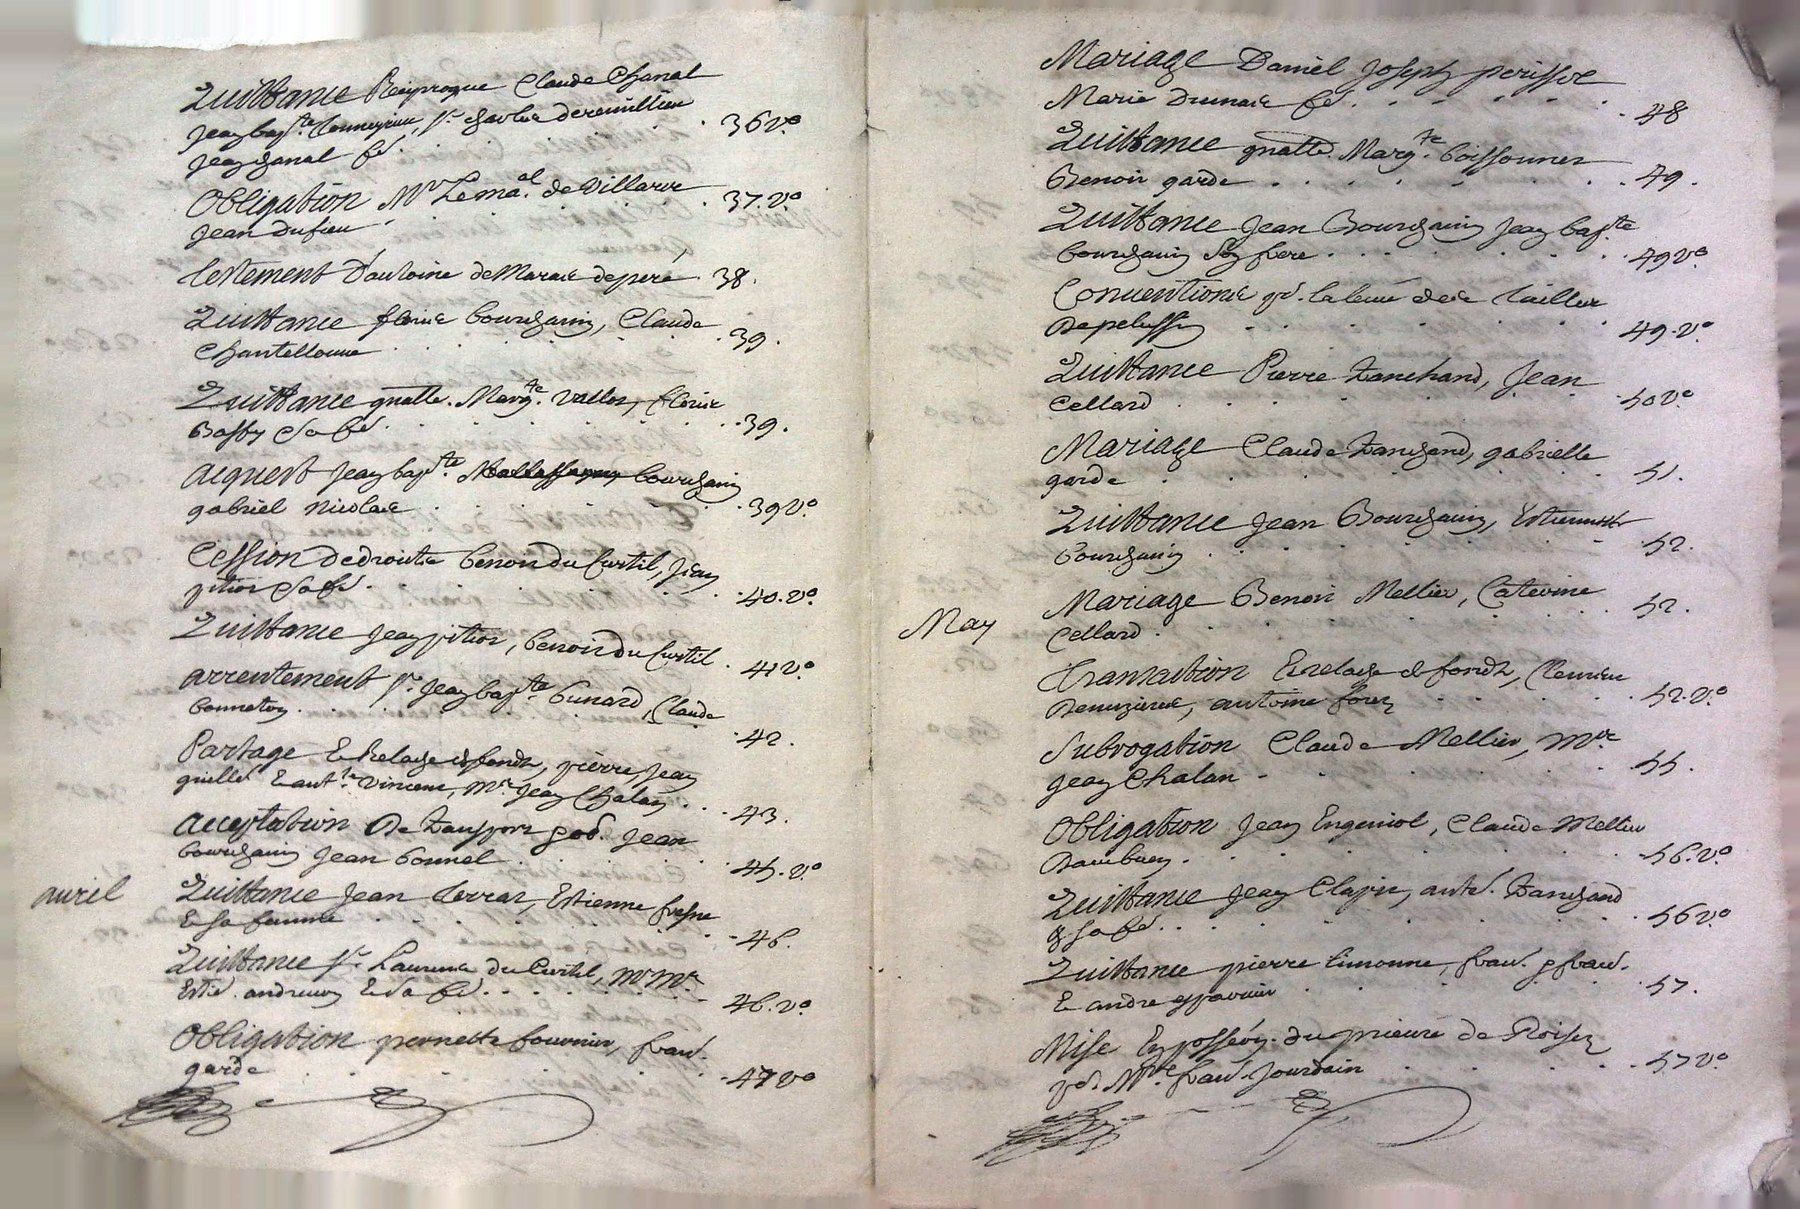 Quittance Reciproque Claude Chanal
Jean bapte, sr Charle
Jean Chanal fé . 36 vo
Obligation Mr Lemaal de Villarue
Jean dufieu . 37. vo
Testement D'antoine de Marae deperé 38.
Quittance fleurie bourgain, Claude
Chantellouue . . . . 39.
Quittance gnalle. Margte. vallor, fleurie
Bassy & sa fé . . . . 39.
acquest Jean bapte. bourgain
gabriel nicolas . . . . 39 vo.
Cession de droitte benoit du Curtil, Jean
pitior & sa fé . . . . 40. vo.
Quittance Jean pitior, benoit du Curtil . 41 vo.
arrentement sr. Jean bapte bunard, Claude
bonneton . . . . 42.
Partage Et Relache de fonds, pierre, Jean
quillet & antne. vincent, Mr. Jean Chalan . . 43.
acceptation De Transport pod. Jean
bourgain Jean bonnel . . . 45. vo
avril
Quittance Jean Terrat, Estienne fresne
& sa femme . . . . 46.
Quittance sr. Laurence du Curtil, mr Mre
Estie. & sa fé . . . . 46. vo.
Obligation pernette fournier, franc.
garde . . . . 47 vo
Mariage Daniel Joseph perissol
Marie fé . . . . 48
Quittance gnalle. Margte. boissonnet
Benoit garde . . . . 49.
Quittance Jean Bourgain Jean bapte
bourgain son frere . . . . 49 vo.
Conventions pr. la levée des tailles
De pelussin . . . . 49. vo
Quittance Pierre Tranchand, Jean
Cellard . . . . 50 vo
Mariage Claude Tranchand, gabrielle
garde . . . . 51.
Quittance Jean Bourgain, Estiennette
bourgain . . . . 52.
May
Mariage Benoit Mellier, Caterine
Cellard . . . . 52.
Transaction & relache de fonds, Fleurie
Deuuzieres, antoine forez . . . 52. vo
Subrogation Claude Mellier, Mre
Jean Chalan . . . . 55.
Obligation Jean Engeniol, Claude Mellier
. . . . 56. vo
Quittance Jean Clapin, anté. Tranchand
& sa fé . . . . 56 vo
Quittance pierre limonne, franc. p franc.
& andre . . . . 57.
Mise En possèon. du prieuré de Roisey
pr. Mre franc. Jourdain . . . 57 vo